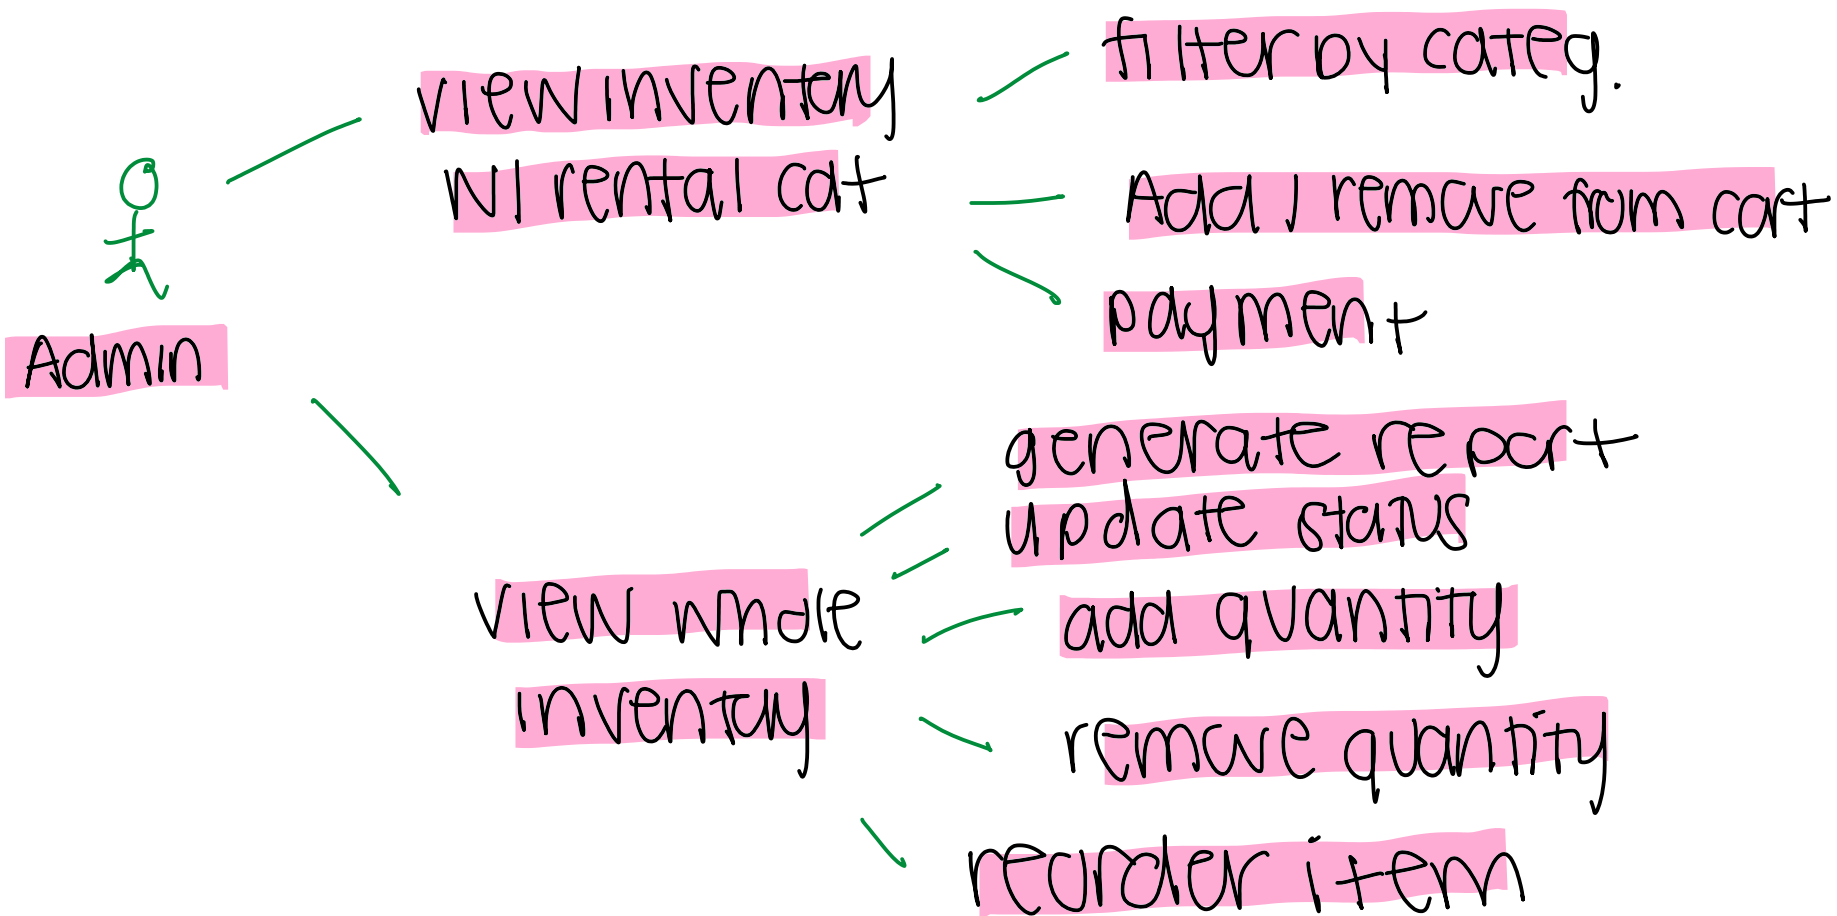 Admin
view inventory
w/ rental cat
filter by categ.
Add / remove from cart
payment
view whole
inventory
generate report
update status
add quantity
remove quantity
reorder item